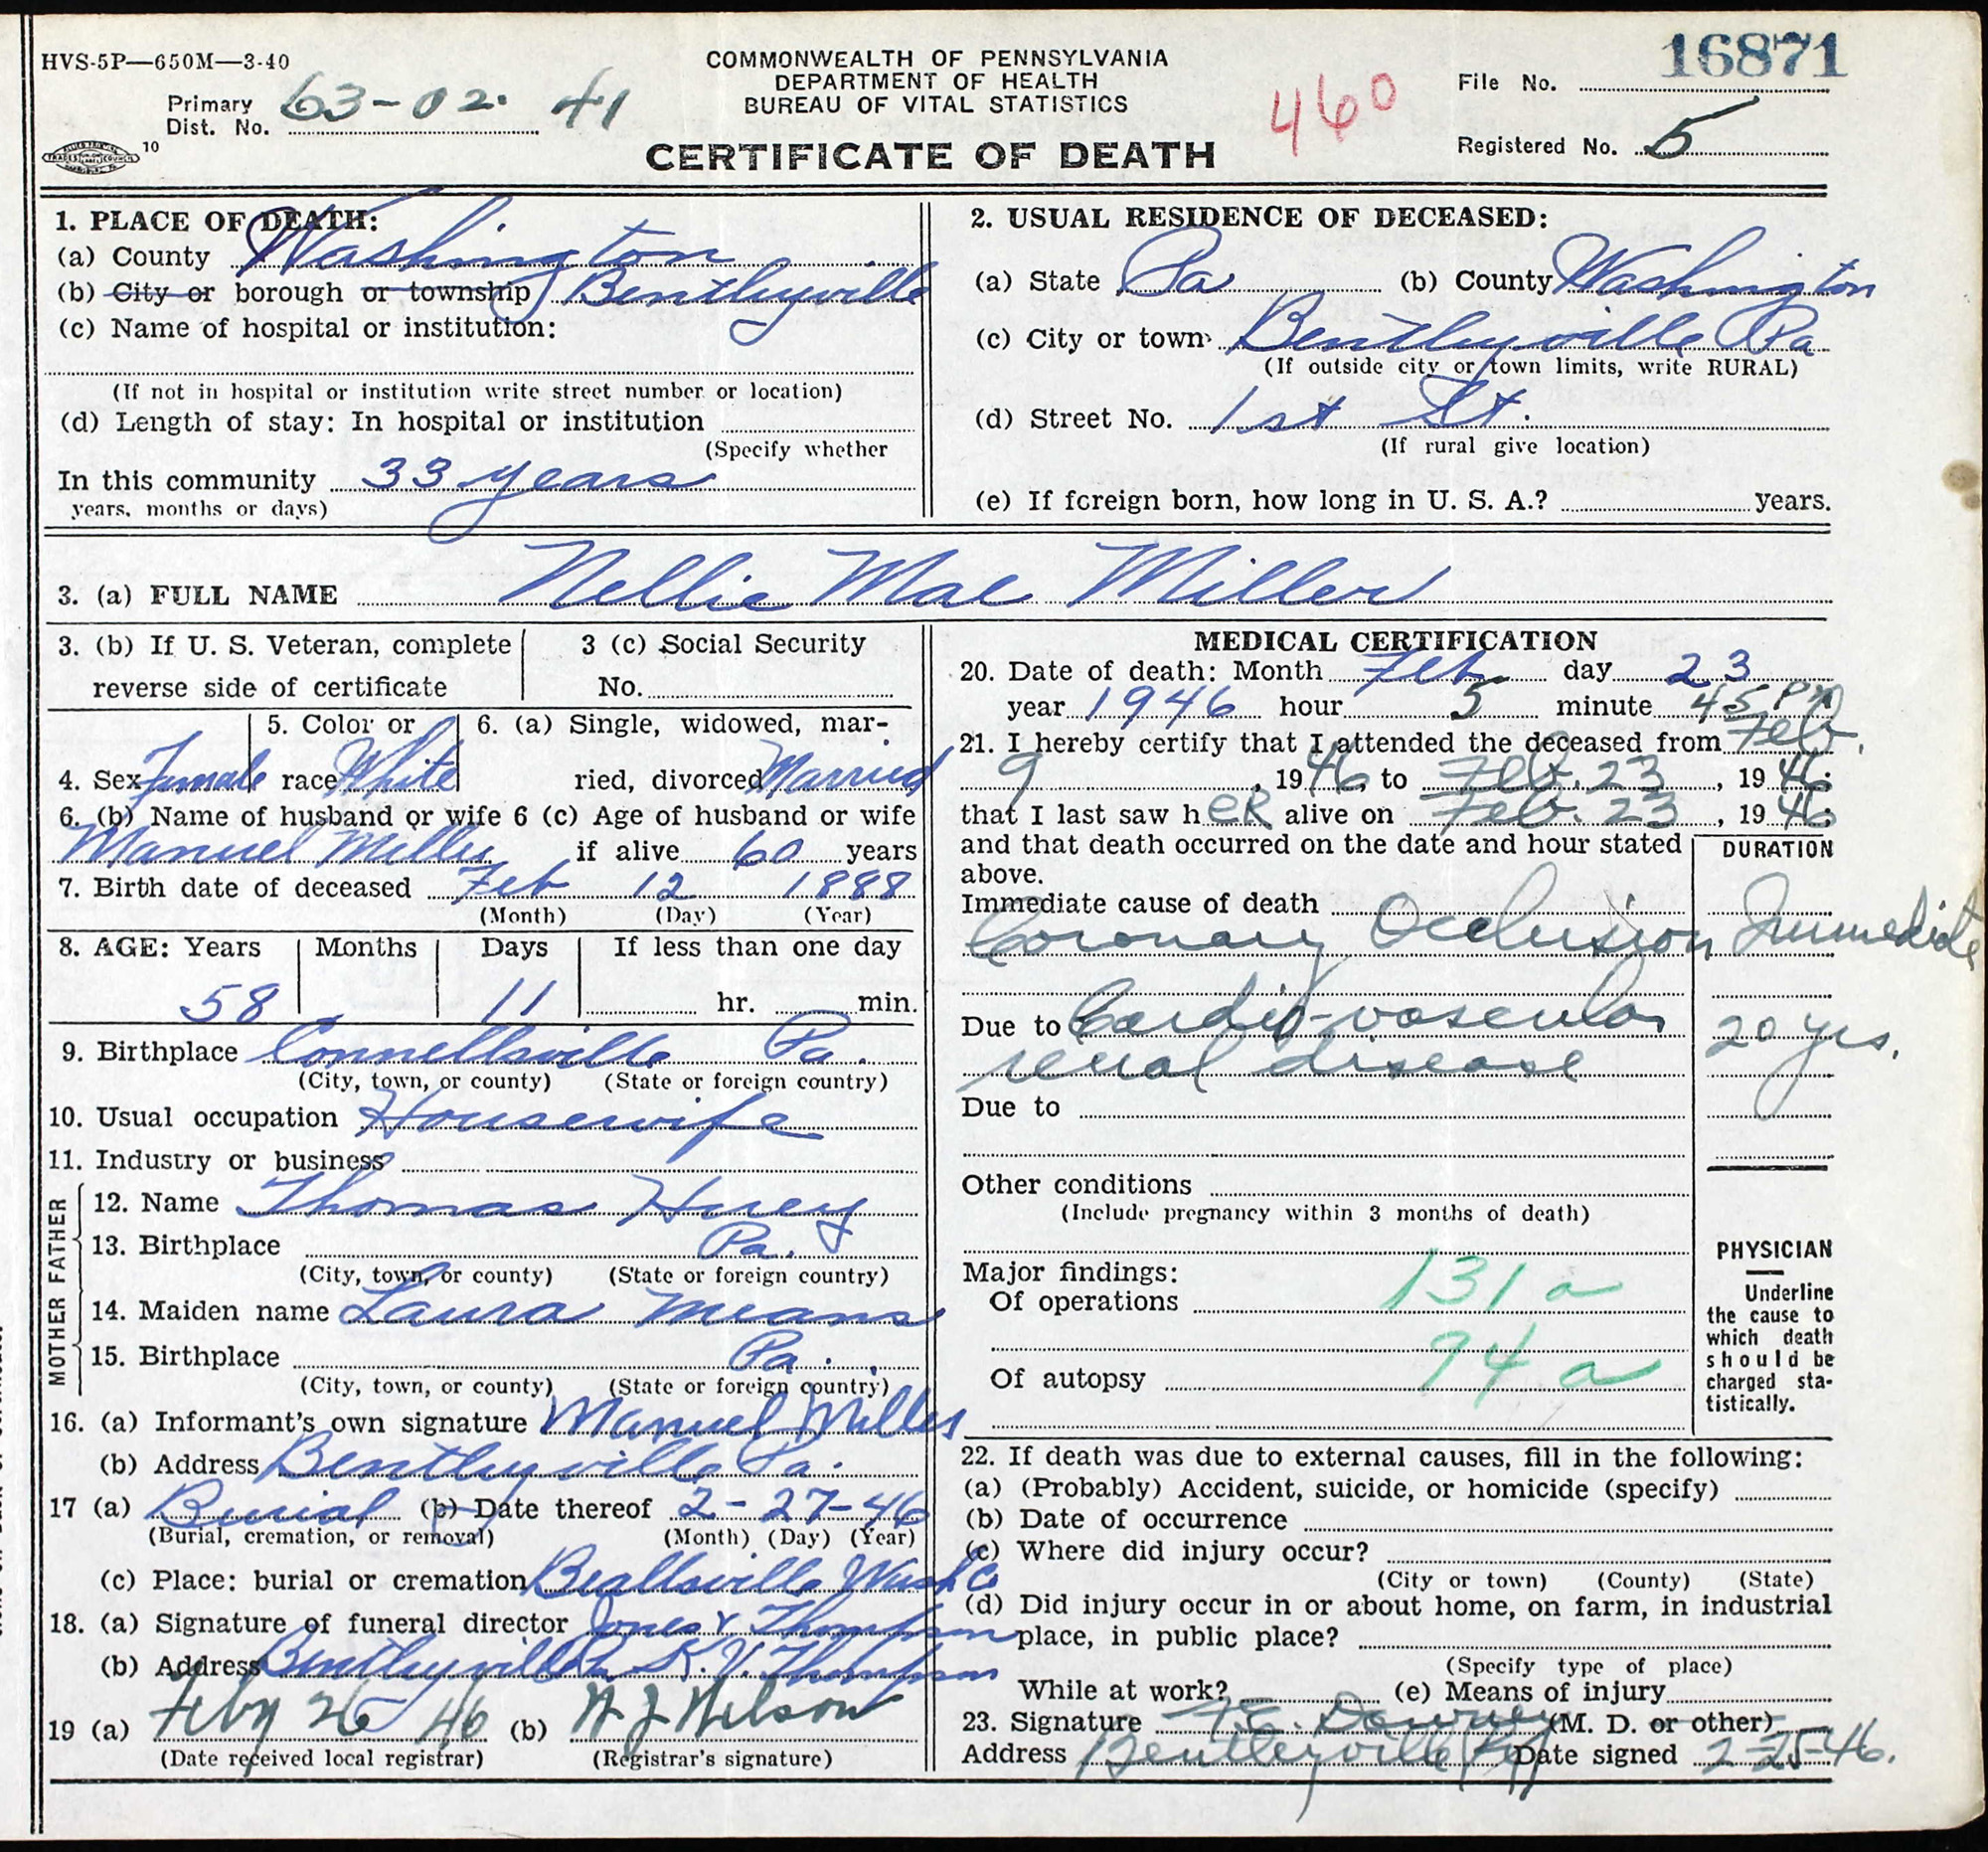 HVS-5P—650M—3-40
COMMONWEALTH OF PENNSYLVANIA
DEPARTMENT OF HEALTH
BUREAU OF VITAL STATISTICS
CERTIFICATE OF DEATH
Primary Dist. No. 63-02-41
10
460
File No. 16871
Registered No. 5
1. PLACE OF DEATH:
(a) County Washington
(b) City or borough or township Bentleyville
(c) Name of hospital or institution:
(If not in hospital or institution write street number or location)
(d) Length of stay: In hospital or institution
(Specify whether
In this community 33 years
years, months or days)
2. USUAL RESIDENCE OF DECEASED:
(a) State Pa (b) County Washington
(c) City or town Bentleyville Pa
(If outside city or town limits, write RURAL)
(d) Street No. 1st St.
(If rural give location)
(e) If foreign born, how long in U. S. A.? years.
3. (a) FULL NAME Nellie Mae Miller
3. (b) If U. S. Veteran, complete
reverse side of certificate
3 (c) Social Security
No.
4. Sex Female
5. Color or
race White
6. (a) Single, widowed, mar-
ried, divorced Married
6. (b) Name of husband or wife 6 (c) Age of husband or wife
Manuel Miller if alive 60 years
7. Birth date of deceased Feb 12 1888
(Month) (Day) (Year)
8. AGE: Years Months Days If less than one day
58 11 hr. min.
9. Birthplace Connellsville Pa.
(City, town, or county) (State or foreign country)
10. Usual occupation Housewife
11. Industry or business
FATHER
12. Name Thomas Huey
13. Birthplace Pa.
(City, town, or county) (State or foreign country)
MOTHER
14. Maiden name Laura Means
15. Birthplace Pa.
(City, town, or county) (State or foreign country)
16. (a) Informant's own signature Manuel Miller
(b) Address Bentleyville Pa.
17 (a) Burial (b) Date thereof 2-27-46
(Burial, cremation, or removal) (Month) (Day) (Year)
(c) Place: burial or cremation Beallsville Wash Co
18. (a) Signature of funeral director Jones & Thompson
(b) Address Bentleyville Pa K. V. Thompson
19 (a) Feby 26 46 (b) N J Nelson
(Date received local registrar) (Registrar's signature)
MEDICAL CERTIFICATION
20. Date of death: Month Feb day 23
year 1946 hour 5 minute 45 PM
21. I hereby certify that I attended the deceased from Feb.
9, 1946, to Feb. 23, 1946;
that I last saw her alive on Feb. 23, 1946;
and that death occurred on the date and hour stated
above.
DURATION
Immediate cause of death
Coronary Occlusion Immediate
Due to Cardio-vascular 20 yrs.
renal disease
Due to
Other conditions
(Include pregnancy within 3 months of death)
Major findings:
Of operations 131 a
94 a
Of autopsy
PHYSICIAN
Underline
the cause to
which death
should be
charged sta-
tistically.
22. If death was due to external causes, fill in the following:
(a) (Probably) Accident, suicide, or homicide (specify)
(b) Date of occurrence
(c) Where did injury occur?
(City or town) (County) (State)
(d) Did injury occur in or about home, on farm, in industrial
place, in public place?
(Specify type of place)
While at work? (e) Means of injury
23. Signature F. E. Downey (M. D. or other)
Address Bentleyville Pa Date signed 2-25-46.